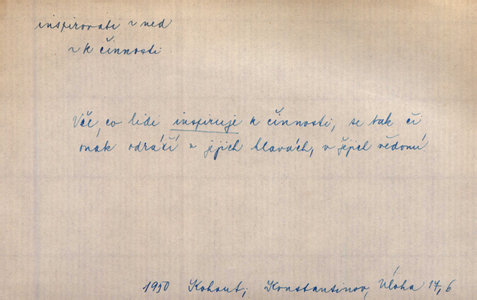 inspirovati v ned
v k činnosti
Vše, co lidi inspiruje k činnosti, se tak či
onak odráží v jejich hlavách, v jejich vědomí
1950 Kohout, Konstantinov Úloha 17,6